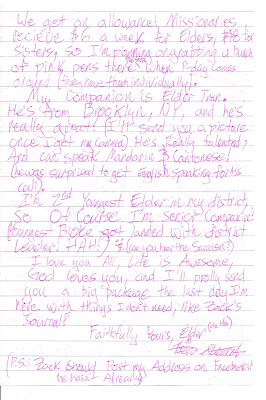 We get an allowance! Missionaries
recieve $6 a week for Elders, $8 for
Sisters, so I'm planning on grabbing a bunch
of pink pens there when P-day comes
around (They have them individually).
My Companion is Elder Tran.
He's from Brooklyn, NY, and he's
Really great! (I'll send you a picture
once I get my camera) He's Really talented!
And can speak Mandarin & Cantonese!
(he was surprized to get English speaking for his
call).
I'm 2nd Youngest Elder in my district,
So Of Course I'm Senior Companion!
(Youngest Bloke got landed with district
Leader! HAH!) (can you hear the Sarcasm?)
I love you All, Life is Awesome,
God loves you, and I'll prolly send
you a big package the last day I'm
here with things I don't need, like Zack's
Journal!
Faithfully Yours, Elder
(P.S.: Zack Should Post my Address on Facebook if
he hasn't Already)